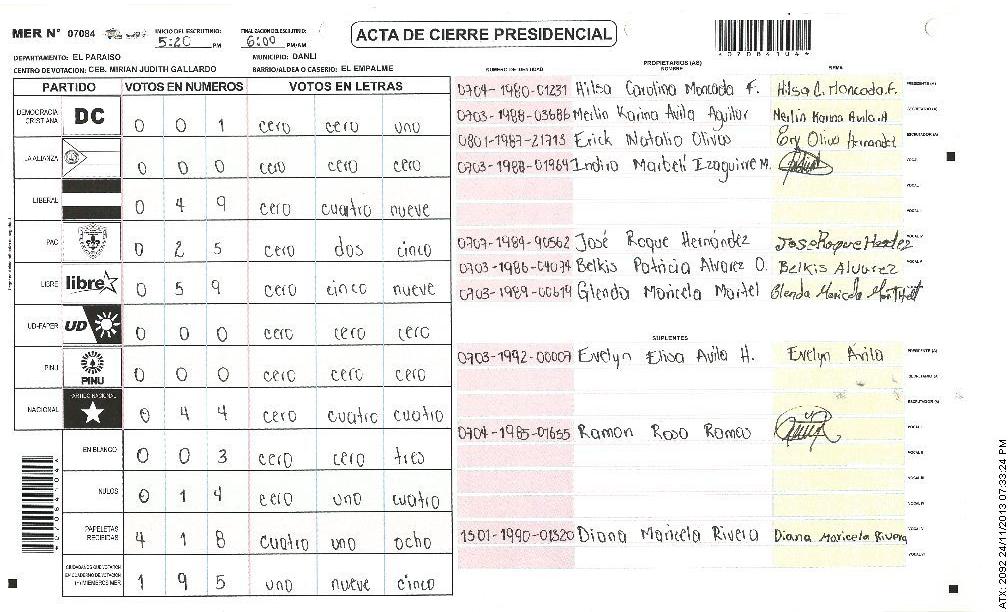 MER N° 07084
INICIO DEL ESCRUTINIO: 5:20 PM
FINALIZACION DEL ESCRUTINIO: 6:00 PM/AM
ACTA DE CIERRE PRESIDENCIAL
DEPARTAMENTO: EL PARAISO
MUNICIPIO: DANLI
CENTRO DE VOTACION: CEB. MIRIAN JUDITH GALLARDO
BARRIO/ALDEA O CASERIO: EL EMPALME
PARTIDO VOTOS EN NUMEROS VOTOS EN LETRAS
DEMOCRACIA CRISTIANA DC 0 0 1 cero cero uno
LA ALIANZA 0 0 0 cero cero cero
LIBERAL 0 4 9 cero cuatro nueve
PAC 0 2 5 cero dos cinco
LIBRE libre 0 5 9 cero cinco nueve
UD-FAPER UD 0 0 0 cero cero cero
PINU PINU 0 0 0 cero cero cero
NACIONAL PARTIDO NACIONAL 0 4 4 cero cuatro cuatro
EN BLANCO 0 0 3 cero cero tres
NULOS 0 1 4 cero uno cuatro
PAPELETAS RECIBIDAS 4 1 8 cuatro uno ocho
CIUDADANOS QUE VOTARON EN CUADERNO DE VOTACION (+) MIEMBROS MER 1 9 5 uno nueve cinco
PROPIETARIOS (AS)
NUMERO DE IDENTIDAD NOMBRE FIRMA
0704-1980-01231 Hilsa Carolina Moncada F. Hilsa C. Moncada F. PRESIDENTE (A)
0703-1988-03686 Merlin Karina Avila Aguilar Merlin Karina Avila A SECRETARIO (A)
0801-1987-21713 Erick Natalio Olivas ESCRUTADOR (A)
0703-1988-01969 Indira Marbeli Izaguirre M. VOCAL I
VOCAL II
VOCAL III
0707-1989-90562 José Roque Hernández VOCAL IV
0703-1986-04074 Belkis Patricia Alvarez O. Belkis Alvarez VOCAL V
0703-1989-00619 Glenda Maricela Martel Glenda Maricela
SUPLENTES
0703-1992-00007 Evelyn Elisa Avila H. Evelyn Avila PRESIDENTE (A)
SECRETARIO (A)
ESCRUTADOR (A)
0704-1985-01655 Ramon Rosa Ramos VOCAL I
VOCAL II
VOCAL III
VOCAL IV
1501-1990-01320 Diana Maricela Rivera Diana Maricela Rivera VOCAL V
VOCAL VI
ATX: 2092 24/11/2013 07:33:24 PM